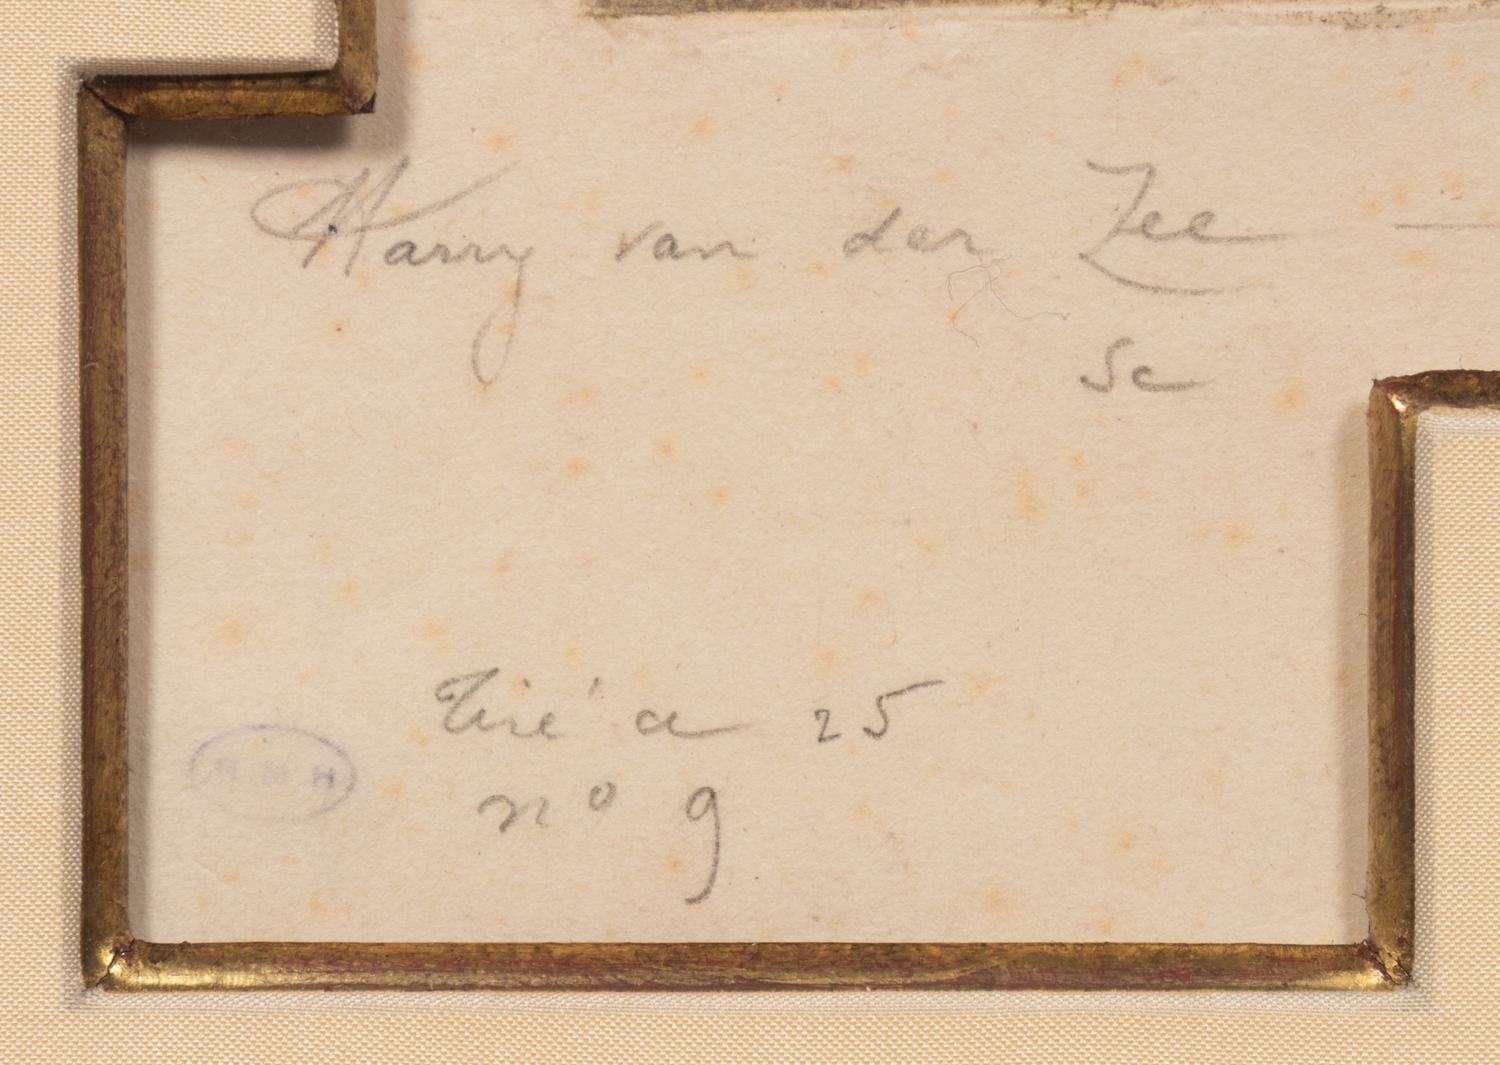 Harry van der Zee —
Sc
Tiré a 25
nº 9